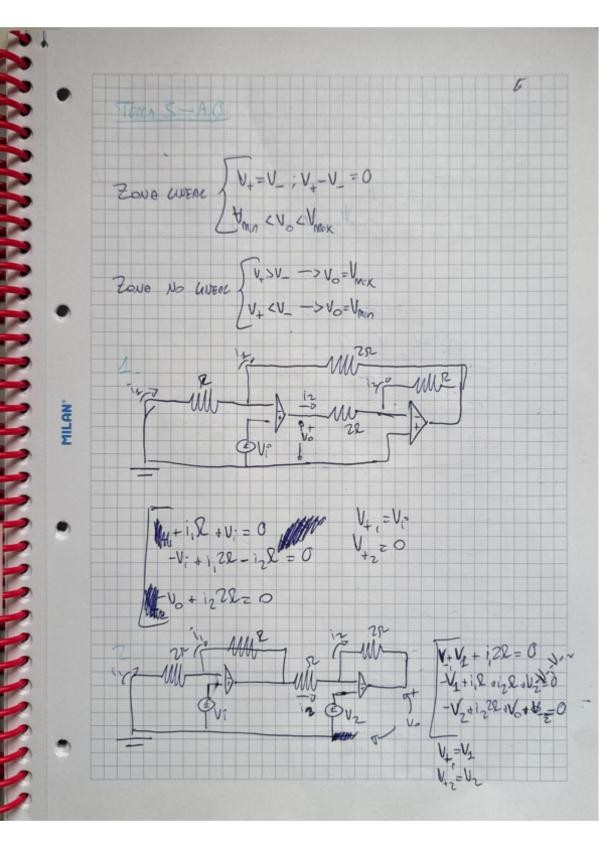 5
TEMA 5 - A.O
ZONA LINEAL { V+ = V- ; V+ - V- = 0
Vmin < Vo < Vmax
ZONA NO LINEAL { V+ > V- -> Vo = Vmax
V+ < V- -> Vo = Vmin
1.
i1 2R
i1 R i2 R
i2
+
Vo
-
2R
Vi
MILAN
+ i1R + Vi = 0
-Vi + i12R - i2R = 0
-Vo + i22R = 0
V+1 = Vi
V+2 = 0
2
i1 2R i1 R R i2 2R
i2
V1 V2
+
Vo
-
V1 + i12R = 0
-V1 + i1R + i2R + V2 = 0
-V2 + i22R + Vo = 0
V+1 = V1
V+2 = V2